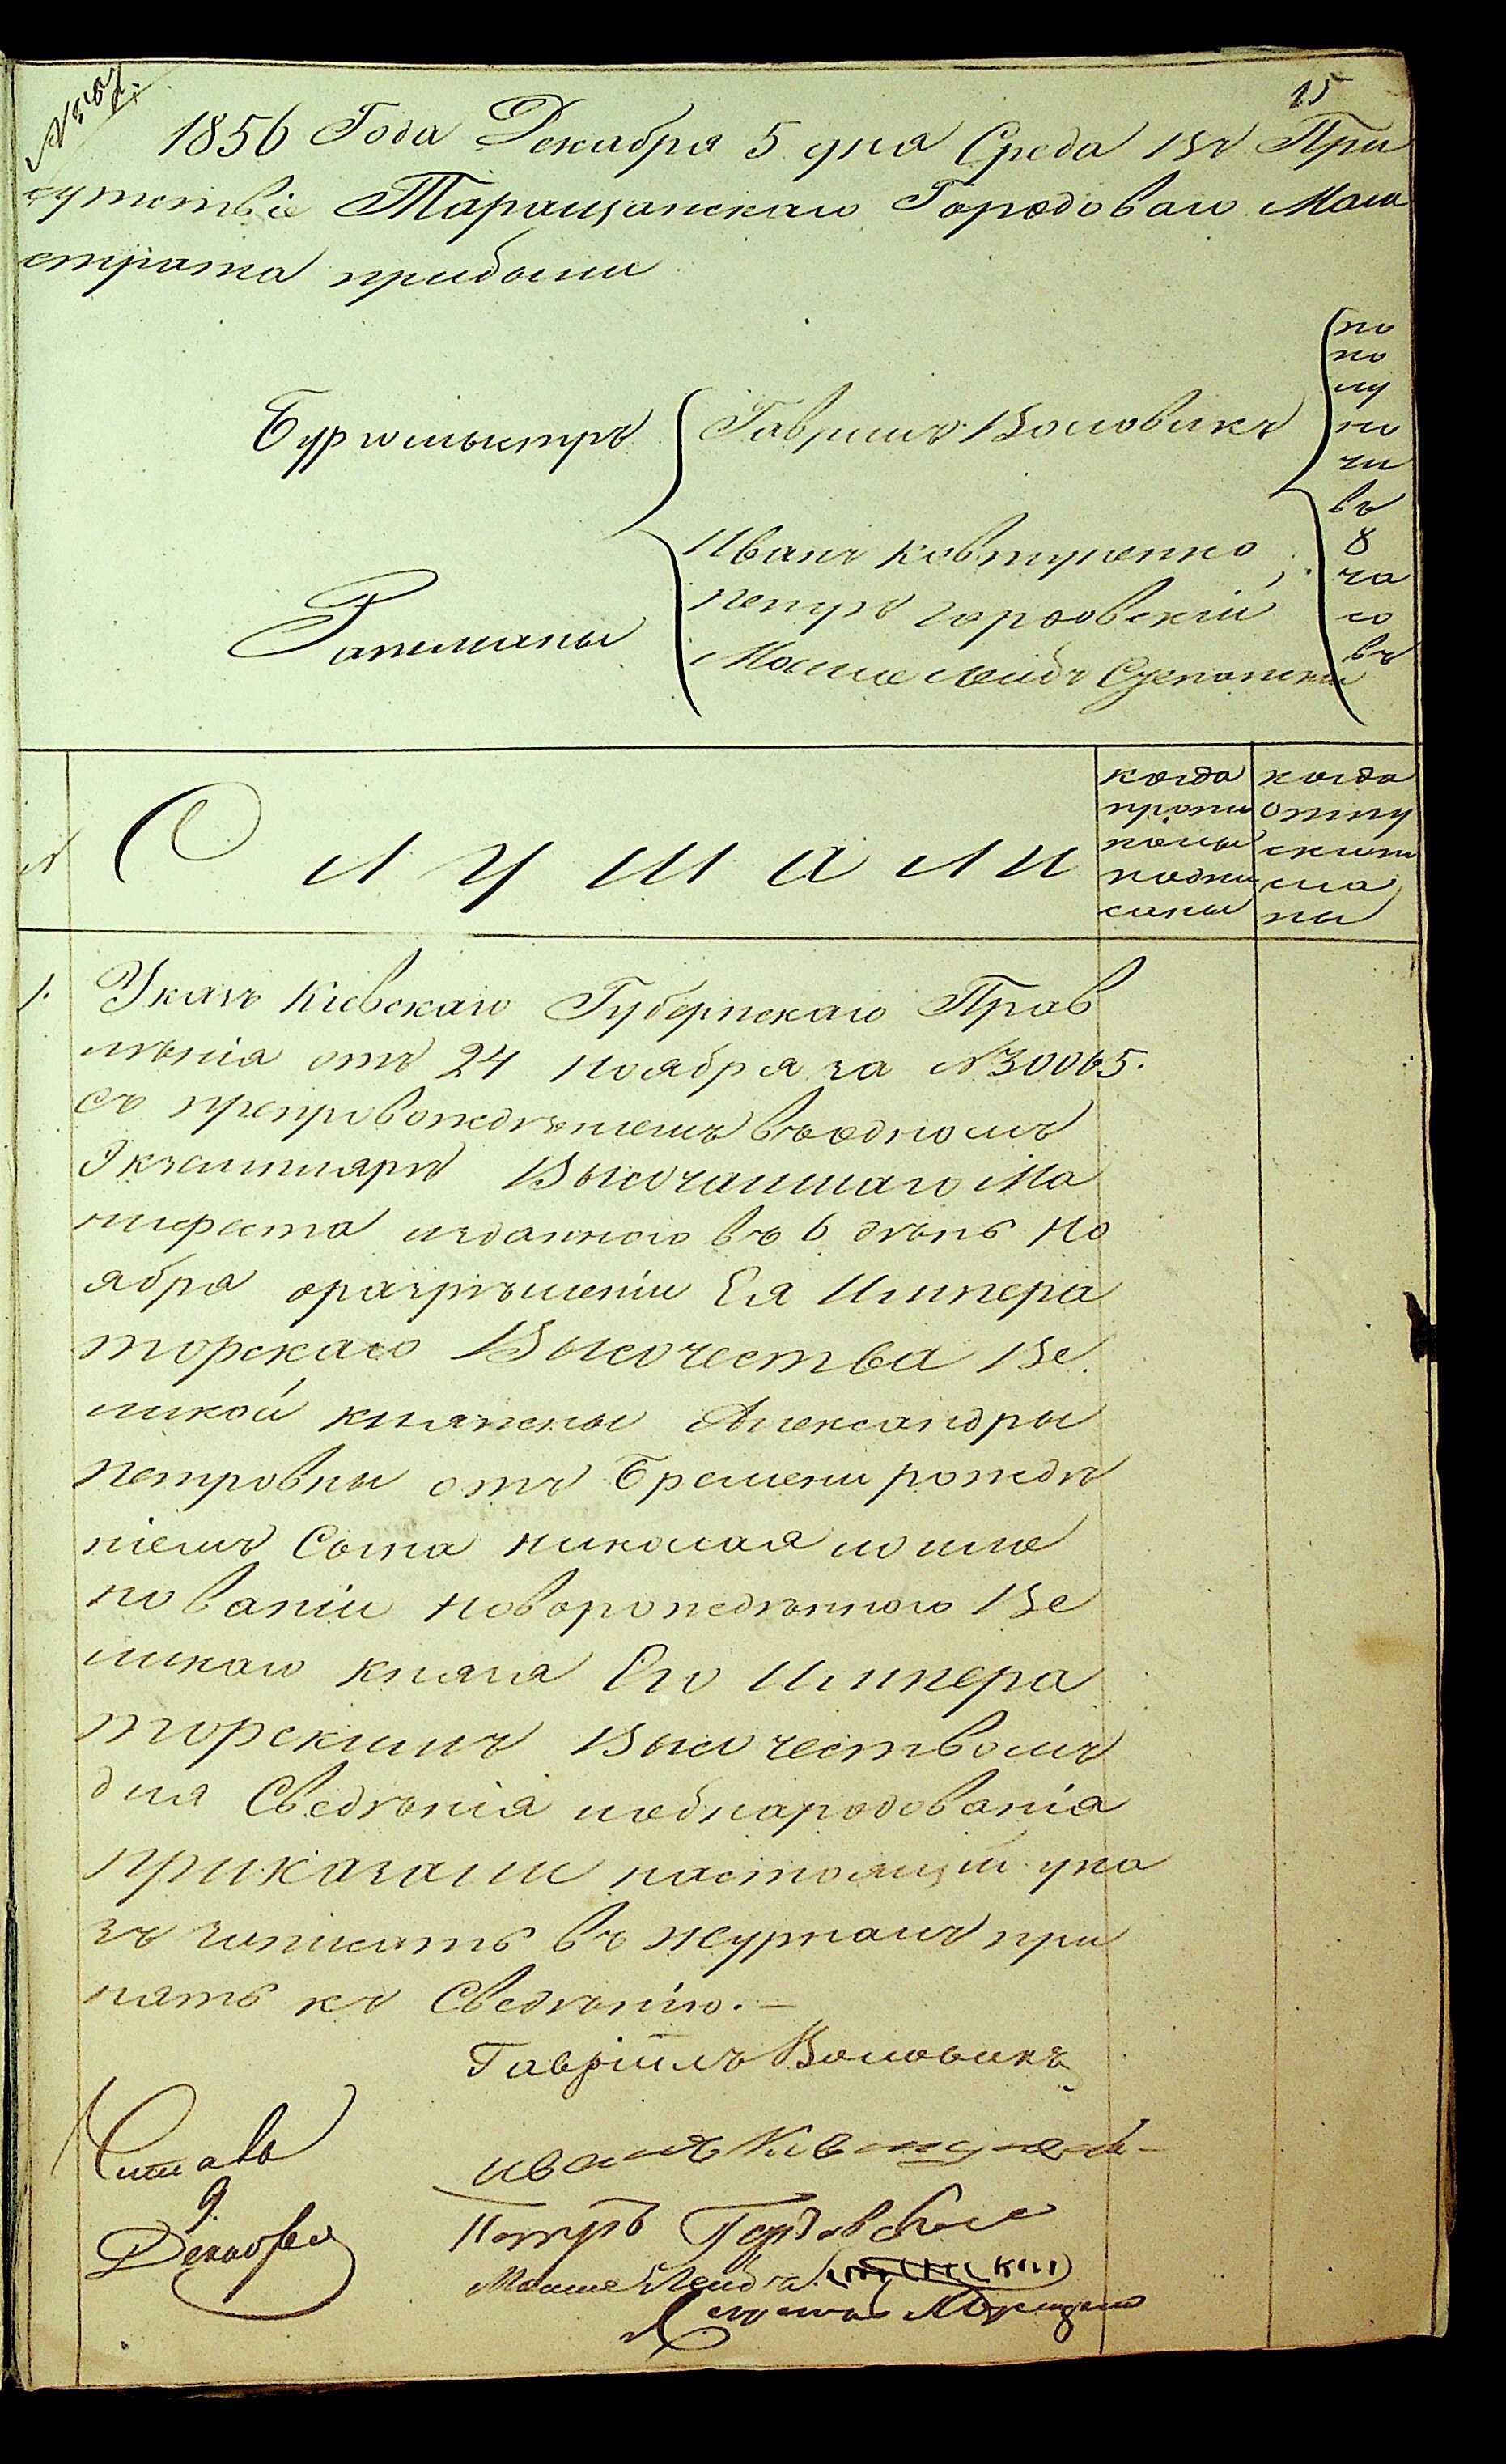 15
1856 Года Декабря 5 дня Среда Въ При
сутствіе Таращанскаго Городоваго Маги
страта прибыли
Бургомыстръ
Гаврилъ Воловикъ
Ратманы
Иванъ Ковтуненко
Петръ Гордовскій
Мошко Лейбъ
по
по
лу
но
чи
въ
8
ча
со
въ
№
Слушали
когда
прото
колы
подпи
саны
когда
отпу
ски
сла
ны
1.
Указъ Кіевскаго Губернскаго Прав
лѣнія отъ 24 Ноября за №30065.
съ препровождѣніемъ въ одномъ
Экземпляръ Высочайшаго Ма
нифеста изданного въ 6 дѣнь Но
ября оразрѣшеніи Ея Импера
торскаго Высочества Ве
ликой княжены Александры
Петровны отъ Бремени рождѣ
ніемъ Сына Николая
нованіи новорождѣнного Ве
ликаго князя Его Импера
торскимъ Высочествомъ
для Сведѣнія иобнародованія
приказали настоящій ука
зъ записать въ журналъ при
нять къ Сведѣнію.-
Гавріилъ Воловикъ
Читалъ
Иванъ
9.
Петръ Гордовскій
Декабря
Мошко Лейба